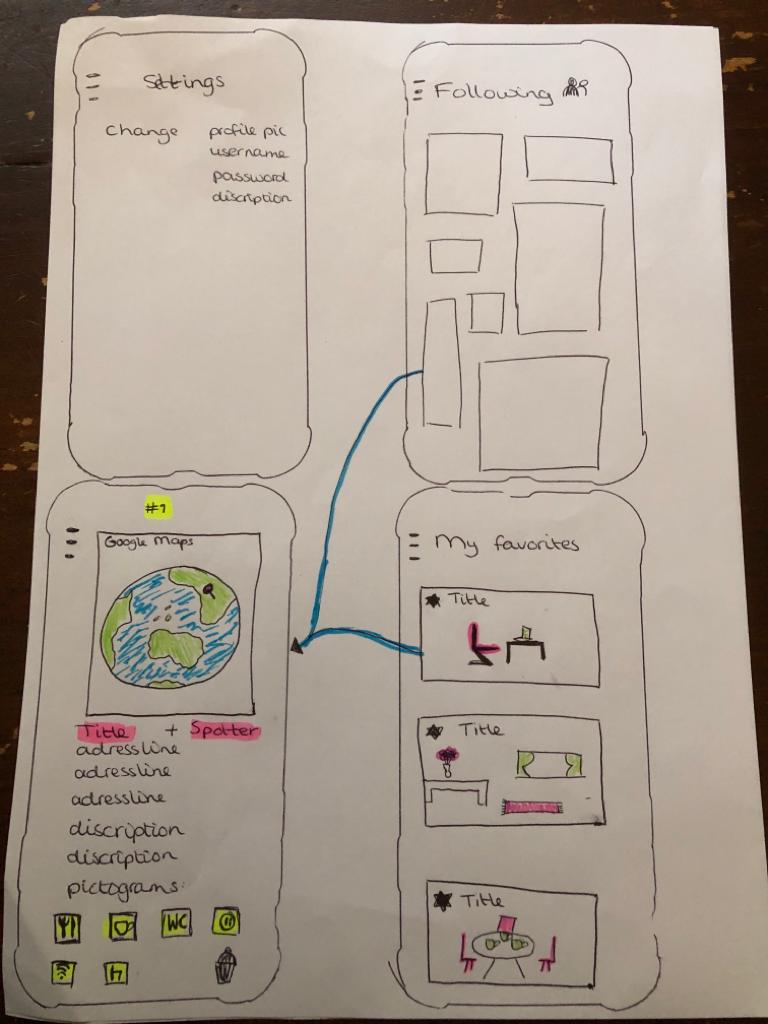 Settings
Change profile pic
username
password
discription
Following
#1
Google Maps
Title + Spotter
adressline
adressline
adressline
discription
discription
pictograms:
WC
My favorites
Title
Title
Title